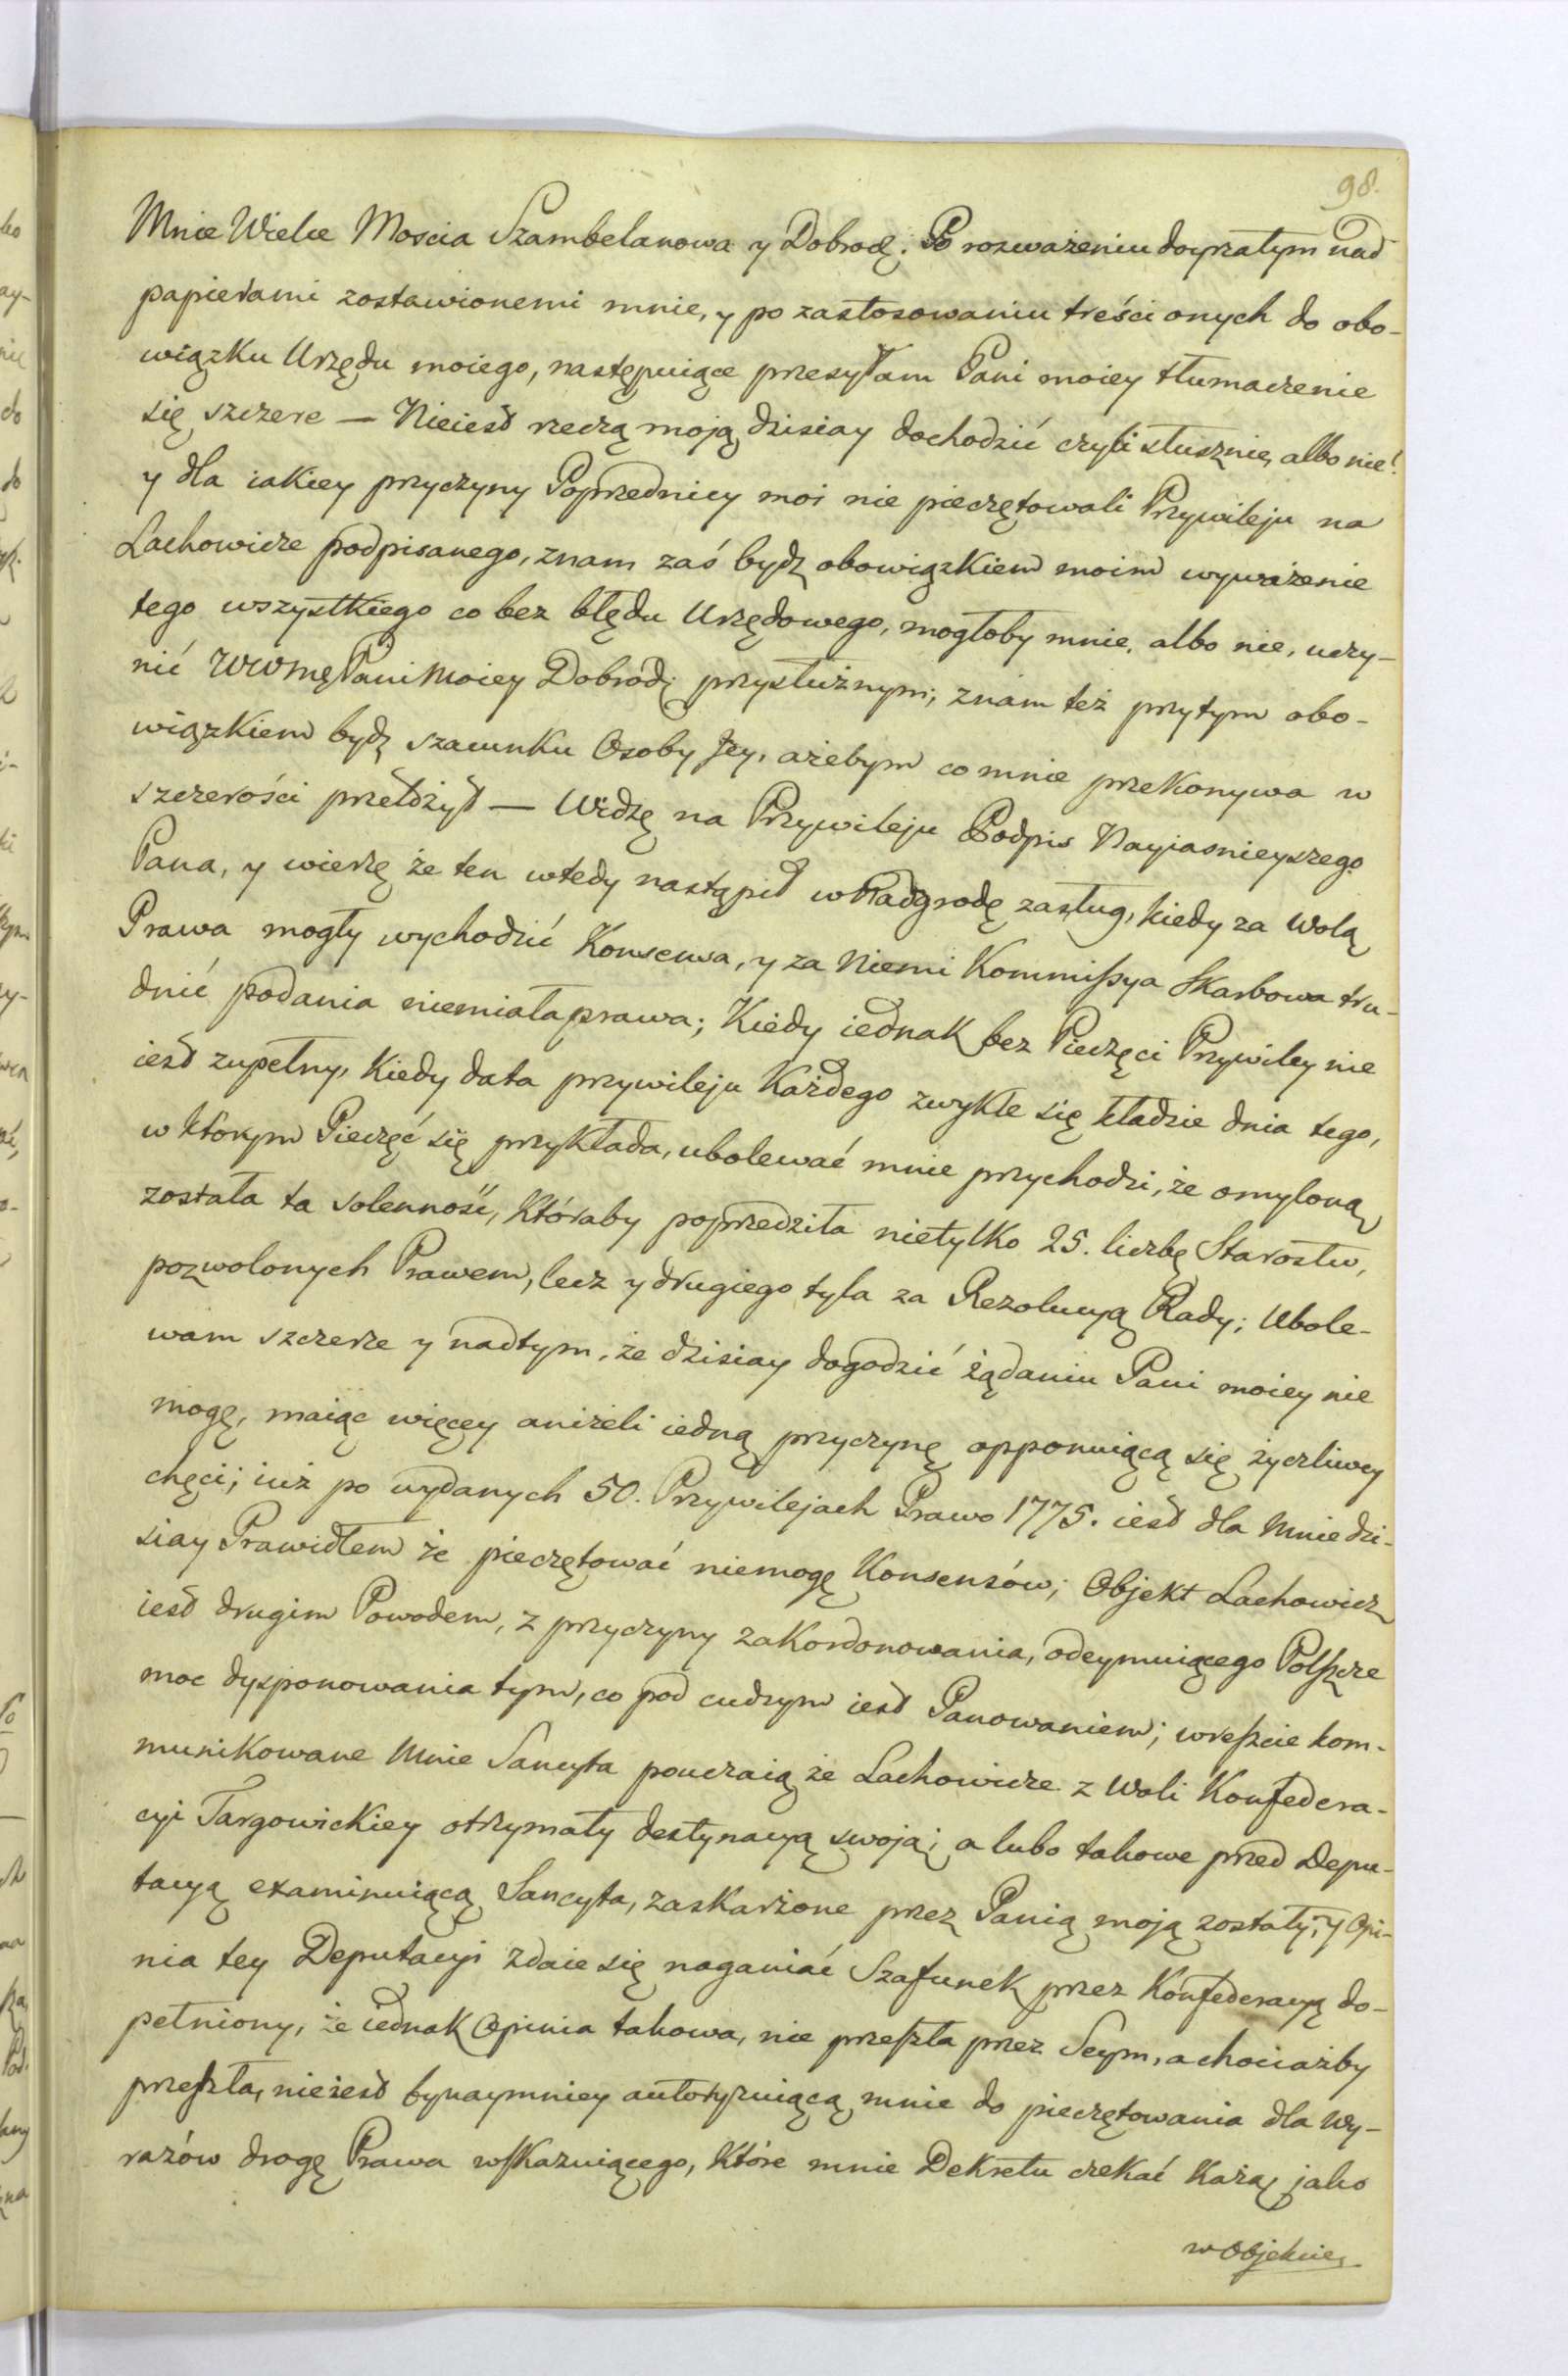 98.
Mnie Wielce Moscia Szambelanowa y Dobrodz. Po rozważeniu doyrzałym nad
papierami zostawionemi mnie, y po zastosowaniu treści onych do obo-
wiązku Urzędu moiego, następuiące przesyłam Pani moiey tłumaczenie
się szczere — Nieiest rzeczą moją dzisiay dochodzić czyli słusznie, albo nie!
y dla iakiey przyczyny Poprzednicy moi nie pieczętowali Przywileju na
Lachowicze podpisanego, znam zaś bydź obowiązkiem moim wyważenie
tego wszystkiego co bez błędu Urzędowego, mogłoby mnie, albo nie, uczy-
nić WWmę Pani Moiey Dobrodz. przysłużnym; znam też przytym obo-
wiązkiem bydź szacunku Osoby Jey, ażebym co mnie przekonywa w
szczerości przełożył — Widzę na Przywileju Podpis Nayiasnieyszego
Pana, y wierzę że ten wtedy nastąpił w Nadgrodę zasług, kiedy za Wolą
Prawa mogły wychodzić Konsensa, y za Niemi Kommissya Skarbowa tru-
dnić podania niemiała prawa; Kiedy iednak bez Pieczęci Przywiley nie
iest zupełny, Kiedy data przywileju Każdego zwykle się kładzie dnia tego,
w którym Pieczęć się przykłada, ubolewać mnie przychodzi, że omyloną
została ta solenność, któraby poprzedziła nietylko 25. liczbę Starostw,
pozwolonych Prawem, lecz y drugiego tyla za Rezolucyą Rady; Ubole-
wam szczerze y nadtym, że dzisiay dogodzić żądaniu Pani moiey nie
mogę, maiąc więcey aniżeli iedną przyczynę opponuiącą się życzliwey
chęci; iuż po wydanych 50. Przywilejach Prawo 1775. iest dla Mnie dzi-
siay Prawidłem że pieczętować niemogę Konsensów; Objekt Lachowicz
iest drugim Powodem, z przyczyny zakordonowania, odeymuiącego Polszcze
moc dysponowania tym, co pod cudzym iest Panowaniem; wreszcie kom-
munikowane Mnie Sancyta pouczaią że Lachowicze z Woli Konfedera-
cyi Targowickiey otrzymały destynacyą swoją; a lubo takowe przed Depu-
tacyą examinuiącą Sancyta, zaskarżone przez Panią moją zostały; y Opi-
nia tey Deputacyi zdaie się naganiać Szafunek przez Konfederacyą do-
pełniony, że iednak Opinia takowa, nie przeszła przez Seym, a chociażby
przeszła, nieiest bynaymniey autoryzuiącą mnie do pieczętowania dla Wy-
razów drogę Prawa wskazuiącego, które mnie Dekretu czekać każą jako
w Objekcie